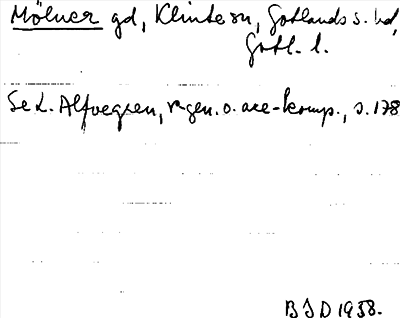 Mölner gd, Klinte sn, Gotlands s. hd,
Gotl. l.
Se L. Alfvegren, r-gen. o. are-komp., s. 178
BID 1938.